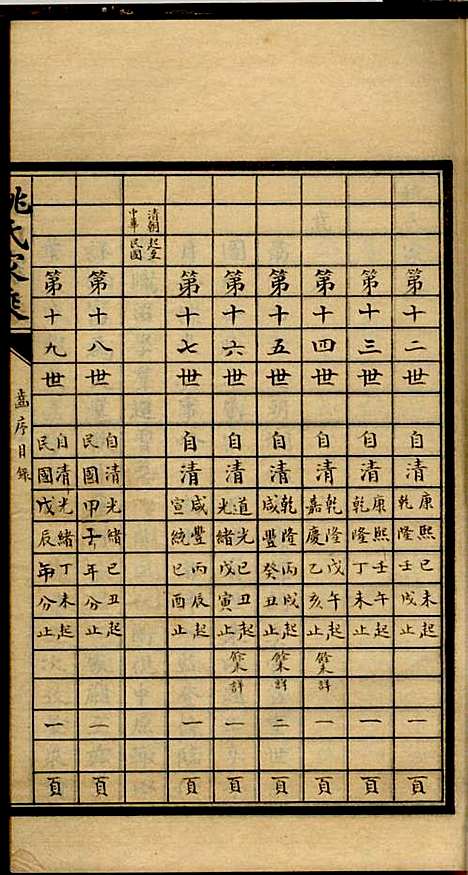 第十二世自清康熙己未起乾隆壬戌止一頁
第十三世自清康熙壬午起乾隆丁未止一頁
第十四世自清乾隆戊午起嘉慶乙亥止餘未詳一頁
第十五世自清乾隆丙戌起咸豐癸丑止餘未詳二頁
第十六世自清道光己丑起光緒戊寅止餘未詳一頁
第十七世自清咸豐丙辰起宣統己酉止一頁
清朝起至
中華民國
第十八世自清光緒己丑起民國甲子年分止二頁
第十九世自清光緒丁未起民國戊辰年分止一頁
姚氏家乘
齒序目錄